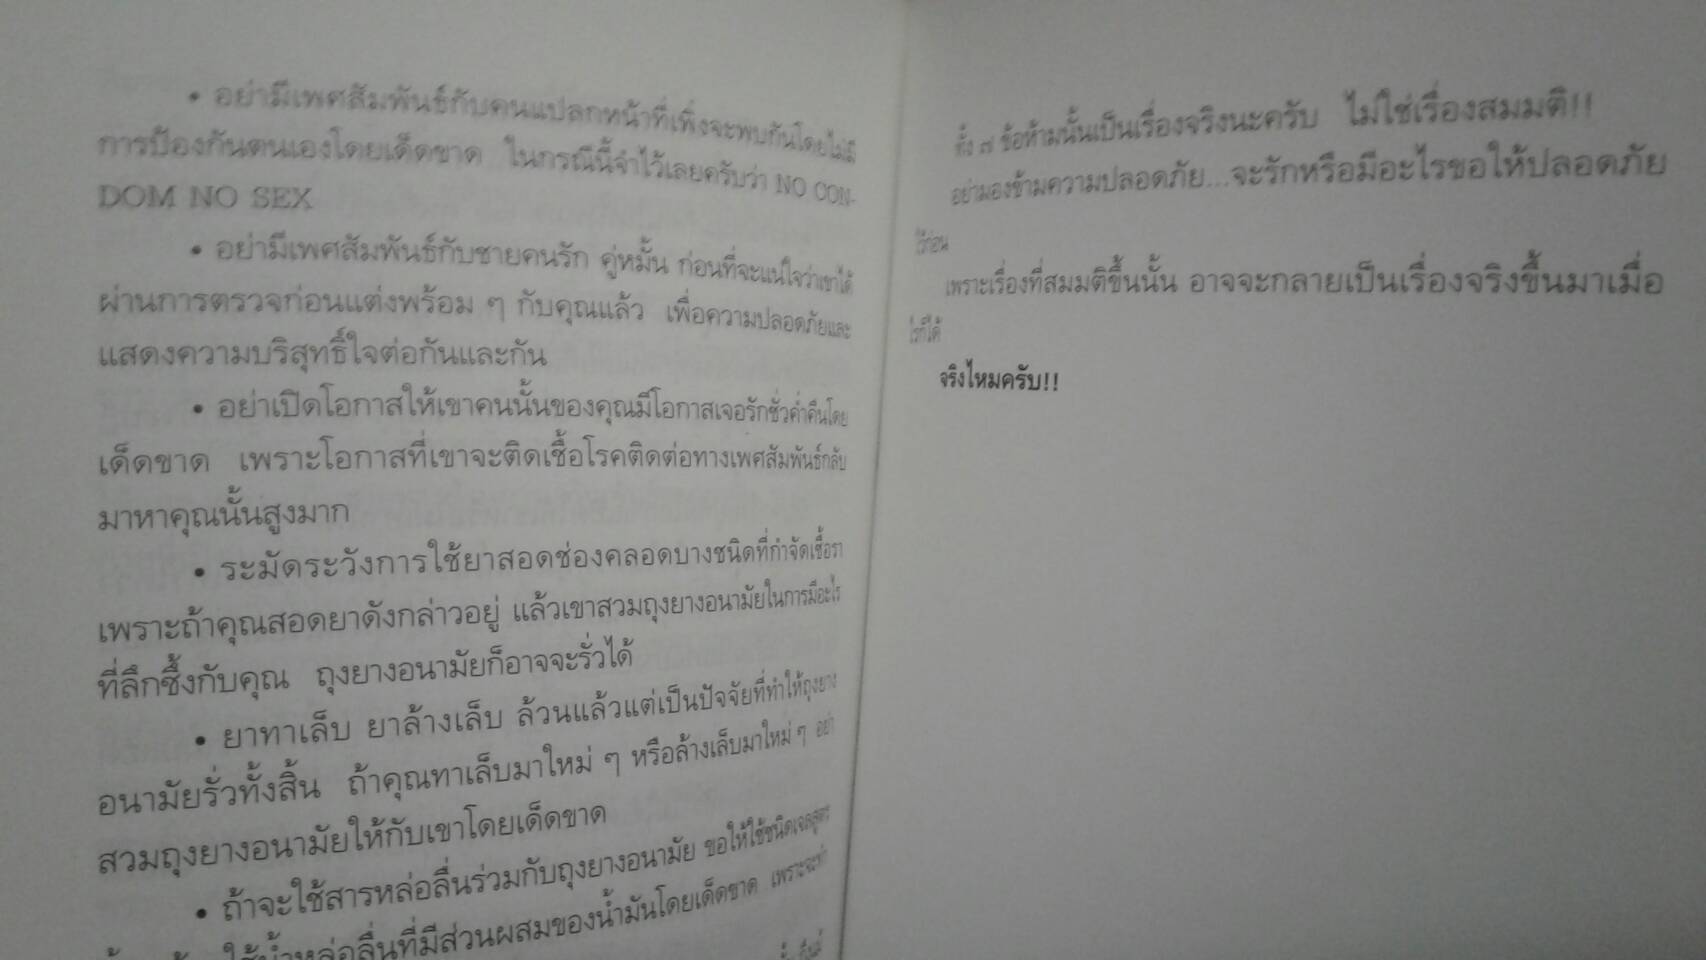 • อย่ามีเพศสัมพันธ์กับคนแปลกหน้าที่เพิ่งจะพบกันโดยไม่มี
การป้องกันตนเองโดยเด็ดขาด ในกรณีนี้จำไว้เลยครับว่า NO CON-
DOM NO SEX
• อย่ามีเพศสัมพันธ์กับชายคนรัก คู่หมั้น ก่อนที่จะแน่ใจว่าเขาได้
ผ่านการตรวจก่อนแต่งพร้อม ๆ กับคุณแล้ว เพื่อความปลอดภัยและ
แสดงความบริสุทธิ์ใจต่อกันและกัน
• อย่าเปิดโอกาสให้เขาคนนั้นของคุณมีโอกาสเจอรักชั่วค่ำคืนโดย
เด็ดขาด เพราะโอกาสที่เขาจะติดเชื้อโรคติดต่อทางเพศสัมพันธ์กลับ
มาหาคุณนั้นสูงมาก
• ระมัดระวังการใช้ยาสอดช่องคลอดบางชนิดที่กำจัดเชื้อรา
เพราะถ้าคุณสอดยาดังกล่าวอยู่ แล้วเขาสวมถุงยางอนามัยในการมีอะไร
ที่ลึกซึ้งกับคุณ ถุงยางอนามัยก็อาจจะรั่วได้
• ยาทาเล็บ ยาล้างเล็บ ล้วนแล้วแต่เป็นปัจจัยที่ทำให้ถุงยาง
อนามัยรั่วทั้งสิ้น ถ้าคุณทาเล็บมาใหม่ ๆ หรือล้างเล็บมาใหม่ ๆ อย่า
สวมถุงยางอนามัยให้กับเขาโดยเด็ดขาด
• ถ้าจะใช้สารหล่อลื่นร่วมกับถุงยางอนามัย ขอให้ใช้ชนิดเจลสูตร
ใช้น้ำหล่อลื่นที่มีส่วนผสมของน้ำมันโดยเด็ดขาด เพราะจะทำ
ทั้ง ๗ ข้อห้ามนั้นเป็นเรื่องจริงนะครับ ไม่ใช่เรื่องสมมติ!!
อย่ามองข้ามความปลอดภัย...จะรักหรือมีอะไรขอให้ปลอดภัย
ไว้ก่อน
เพราะเรื่องที่สมมติขึ้นนั้น อาจจะกลายเป็นเรื่องจริงขึ้นมาเมื่อ
ไรก็ได้
จริงไหมครับ!!